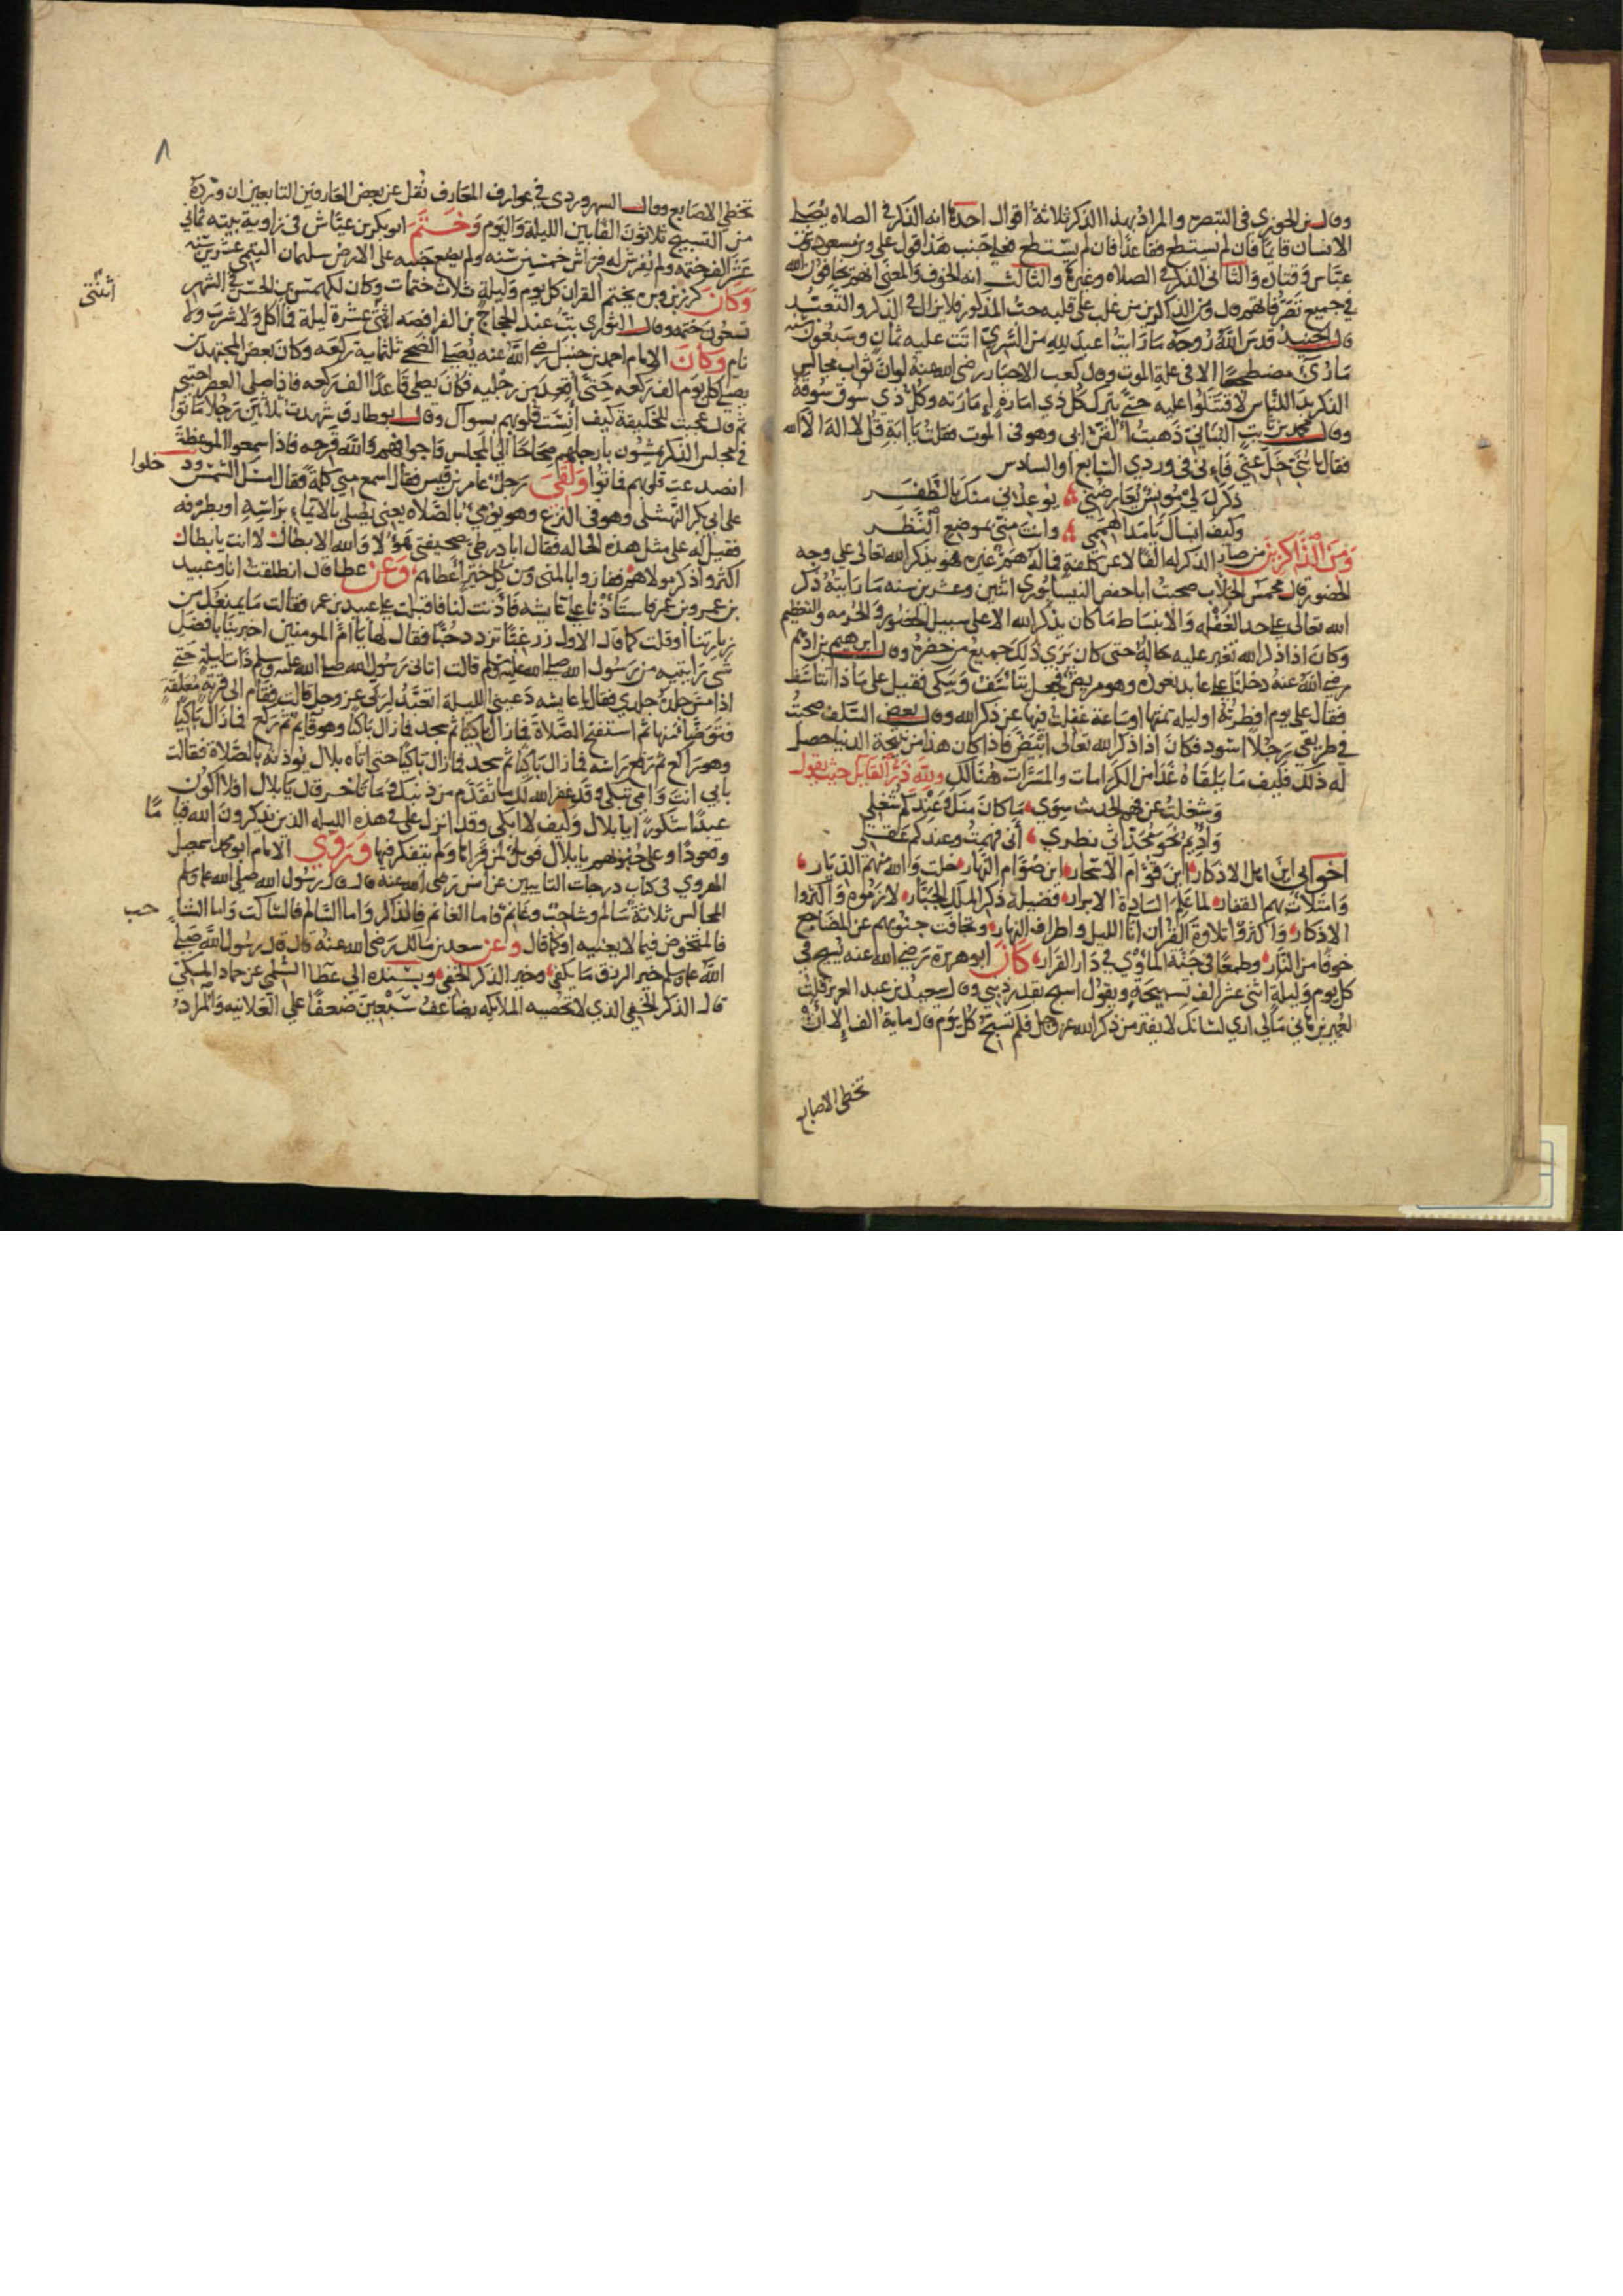 وقال بن الجوزي في التبصرة والمراد بهذا الذكر ثلاثة اقوال احدها انه الذكر في الصلاه يصلي
الانسان قايما فان لم يستطع فقاعدا فان لم يستطع فعلى جنب هذا قول علي وبن مسعود وبن
عباس وقتاده والثاني الذكر في الصلاه وغيرها والثالث انه الخوف والمعنى انهم يخافون الله
في جميع تصرفاتهم وقال من الذاكرين من غلب على قلبه حب المذكور فلا يزال في الذكر والتعبد
قال الجنيد قدس الله روحه ما رايت اعبد لله من السري اتت عليه ثمان وسبعون سنه
ما رئ مضطجعا الا في علة الموت وقال كعب الاحبار رضي الله عنه لو ان ثواب مجالس
الذكر بدا للناس لاقتتلوا عليه حتى يترك كل ذي امارة امارته وكل ذي سوق سوقه
وقال محمد بن ثابت البناني ذهبت القن ابي وهو في الموت فقلت يا ابة قل لا اله الا الله
فقال يا بني خل عني فاني في وردي السابع او السادس
ذكرك لي مونس يعارضني يوعدني منك بالظفر
وكيف انساك يا مدا هممي وانت مني بموضع النظر
ومن الذاكرين من صار الذكر له الفا لا عن كلفة فما له هم غيره فهو يذكر الله تعالى على وجه
الحضور قال الجلاب صحبت ابا حفص النيسابوري اثنين وعشرين سنه ما رايته ذكر
الله تعالى على حد الغفله والانبساط ما كان يذكر الله الا على سبيل الحضور والحرمه والتعظيم
وكان اذا ذكر الله تغير عليه حاله حتى كان يري ذلك جميع من حضره وقال ابرهيم بن ادهم
رضي الله عنه دخلنا على عابد نعوده وهو مريض فجعل يتاسف ويبكي فقيل على ماذا تتاسف
فقال على يوم افطرته او ليله نمتها او ساعة غفلت فيها عن ذكر الله وقال بعض السلف صحبت
في طريقي رجلا اسود فكان اذا ذكر الله تعالى ابيض فاذا كان هذا من نتيجة الدنيا حصل
له ذلك فكيف ما يلقاه غدا من الكرامات والمسرات هنالك ولله در القايل حيث يقول
وشغلت عن فهم الحديث سوى ما كان منك وعندكم شغلي
واديم نحو محدثي نظري اني فهمت وعندكم عقلي
اخواني اين اهل الاذكار اين قوام الاسحار اين صوام النهار خلت والله منهم الديار
وامتلات بهم القفار لما علم السادة الابرار فضيلة ذكر الملك الجبار لازموه واكثروا
الاذكار واكثروا تلاوة القران انا الليل واطراف النهار وتجافت جنوبهم عن المضاجع
خوفا من النار وطمعا في جنة الماوي في دار القرار كان ابو هريرة رضي الله عنه يسبح في
كل يوم وليلة اثني عشر الف تسبيحة ويقول اسبح بقدر ذنبي وقال سعيد بن عبد العزيز قلت
لعمير بن هاني ما لي اري لسانك لا يفتر من ذكر الله عز وجل فكم تسبح كل يوم قال ماية الف الا ان
تخطي الاصابع
٨
تخطي الاصابع وقال السهروردي في عوارف المعارف نقل عن بعض العارفين التابعين ان ورده
من التسبيح ثلاثون الفا بين الليلة واليوم وختم ابو بكر بن عياش في زاوية بيته ثماني
عشر الف ختمه ولم يفرش له فراش خمسين سنه ولم يضع جنبه على الارض سليمان التيمي عشرين سنه
وكان كرز بن وبره يختم القران كل يوم وليلة ثلاث ختمات وكان لكهمس بن الحسن في الشهر
تسعون ختمه وقال الثوري بت عند الحجاج بن الفرافصه اثنتى عشرة ليلة فما اكل ولا شرب ولا
نام وكان الامام احمد بن حنبل رضي الله عنه يصلي الضحى ثلثماية ركعه وكان بعض المجتهدين
يصلي كل يوم الف ركعه حتى اقعد من رجليه فكان يصلي قاعدا الف ركعه فاذا صلى العصر احتبى
ثم قال عجبت للخليقة كيف انست قلوبهم بسواك وقال ابو طارق شهدت ثلاثين رجلا ماتوا
في مجلس الذكر يمشون بارجلهم صحاحا الى المجلس واجوافهم والله قرحه فاذا سمعوا الموعظة
انصدعت قلوبهم فماتوا ولقي رجل عامر بن قيس فقال اسمع مني كلمة فقال امسك الشمس
على ابي بكر النهشلي وهو في النزع وهو يومي بالصلاه يعني يصلي بالايماء براسه او بطرفه
فقيل له على مثل هذه الحاله فقال ابادر طي صحيفتي هولا والله الابطال لا انت يا بطال
اكثروا ذكر مولاهم ففازوا بالمنى ومن كل خير اعطاهم وعن عطا قال انطلقت انا وعبيد
بن عمير وبن عمر فاستاذنا على عايشه فاذنت لنا فاقبلت على عبيد بن عمر فقالت ما يمنعك من
زيارتنا او قلت كما قال الاول زر غبا تزدد حبا فقال لها يا ام المومنين اخبرينا بافضل
شي رايتيه من رسول الله صلى الله عليه وسلم قالت اتاني رسول الله صلى الله عليه وسلم ذات ليلة حتى
اذا مس جلده جلدي فقال يا عايشه دعيني الليلة اتعبد لربي عز وجل قالت فقام الى قربة معلقة
فتوضا منها ثم استفتح الصلاة فما زال باكيا ثم سجد فما زال باكيا وهو قايم ثم ركع فما زال باكيا
وهو راكع ثم رفع راسه فما زال باكيا ثم سجد فما زال باكيا حتى اتاه بلال يوذنه بالصلاة فقالت
بابي انت وامي تبكي وقد غفر الله لك ما تقدم من ذنبك وما تاخر قال يا بلال افلا اكون
عبدا شكورا يا بلال وكيف لا ابكي وقد انزل علي في هذه الليله الذين يذكرون الله قيا
وقعودا وعلى جنوبهم يا بلال فويل لمن قراها ولم يتفكر فيها وروي الامام ابو محمد اسمعيل
الهروي في كتاب درجات التايبين عن انس رضي الله عنه قال قال رسول الله صلى الله عليه وسلم
المجالس ثلاثة سالم وشاجب وغانم فاما الغانم فالذاكر واما السالم فالساكت واما الشا
فالمتخوض فيما لا يعنيه او كما قال وعن سعد بن مالك رضي الله عنه قال قال رسول الله صلى
الله عليه وسلم خير الرزق ما يكفي وخير الذكر الخفي وبسنده الى عطا السلمي عن حماد المكي
قال الذكر الخفي الذي لا تحصيه الملايكه يضاعف سبعين ضعفا على العلانيه والمراد
اثنتى
خلوا
ما
جب